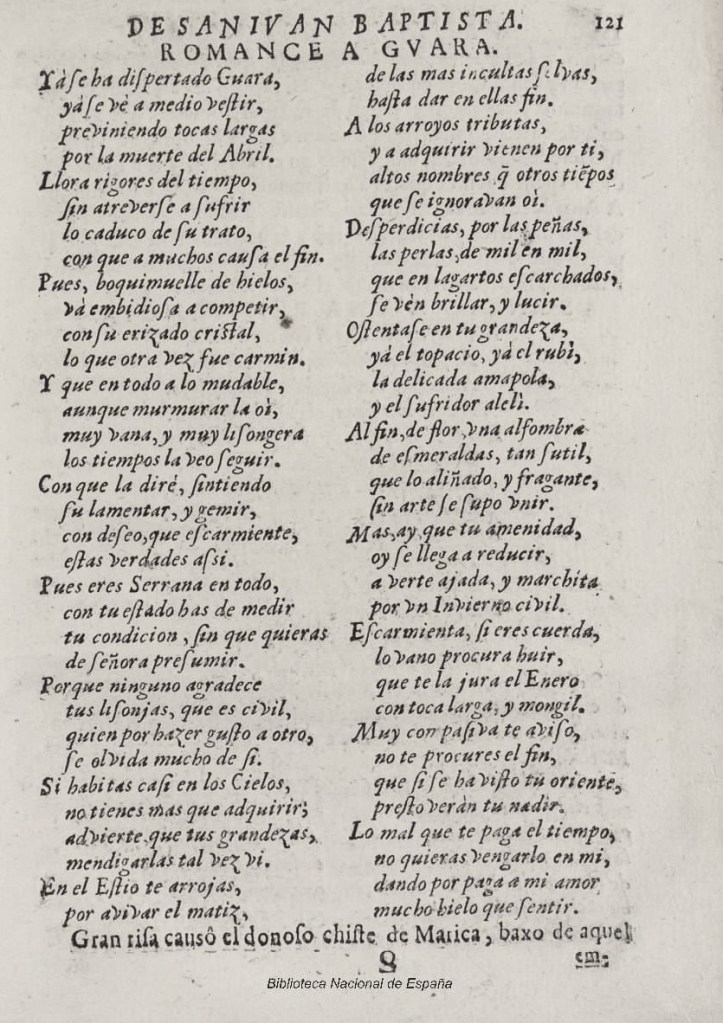 DE SAN IVAN BAPTISTA. 121
ROMANCE A GVARA.
Yà ſe ha diſpertado Guara,
yà ſe vè a medio veſtir,
previniendo tocas largas
por la muerte del Abril.
Llora rigores del tiempo,
ſin atreverſe a ſufrir
lo caduco de ſu trato,
con que a muchos cauſa el fin.
Pues, boquimuelle de hielos,
và embidioſa a competir,
con ſu erizado criſtal,
lo que otra vez fue carmin.
Y que en todo a lo mudable,
aunque murmurar la oì,
muy vana, y muy liſongera
los tiempos la veo ſeguir.
Con que la diré, ſintiendo
ſu lamentar, y gemir,
con deſeo, que eſcarmiente,
eſtas verdades aſsi.
Pues eres Serrana en todo,
con tu eſtado has de medir
tu condicion, ſin que quieras
de ſeñora preſumir.
Porque ninguno agradece
tus liſonjas, que es civil,
quien por hazer guſto a otro,
ſe olvida mucho de ſi.
Si habitas caſi en los Cielos,
no tienes mas que adquirir;
advierte, que tus grandezas,
mendigarlas tal vez vi.
En el Eſtio te arrojas,
por avivar el matiz,
de las mas incultas ſelvas,
haſta dar en ellas fin.
A los arroyos tributas,
y a adquirir vienen por ti,
altos nombres q̃ otros tiẽpos
que ſe ignoravan oì.
Deſperdicias, por las peñas,
las perlas, de mil en mil,
que en lagartos eſcarchados,
ſe vèn brillar, y lucir.
Oſtentaſe en tu grandeza,
yà el topacio, yà el rubì,
la delicada amapola,
y el ſufridor alelì.
Al fin, de flor, vna alfombra
de eſmeraldas, tan ſutil,
que lo aliñado, y fragante,
ſin arte ſe ſupo vnir.
Mas, ay, que tu amenidad,
oy ſe llega a reducir,
a verte ajada, y marchita
por vn Invierno civil.
Eſcarmienta, ſi eres cuerda,
lo vano procura huir,
que te la jura el Enero
con toca larga, y mongil.
Muy compaſiva te aviſo,
no te procures el fin,
que ſi ſe ha viſto tu oriente,
preſto veràn tu nadir.
Lo mal que te paga el tiempo,
no quieras vengarlo en mi,
dando por paga a mi amor
mucho hielo que ſentir.
Gran riſa causô el donoſo chiſte de Marica, baxo de aquel
Q em-
Biblioteca Nacional de España